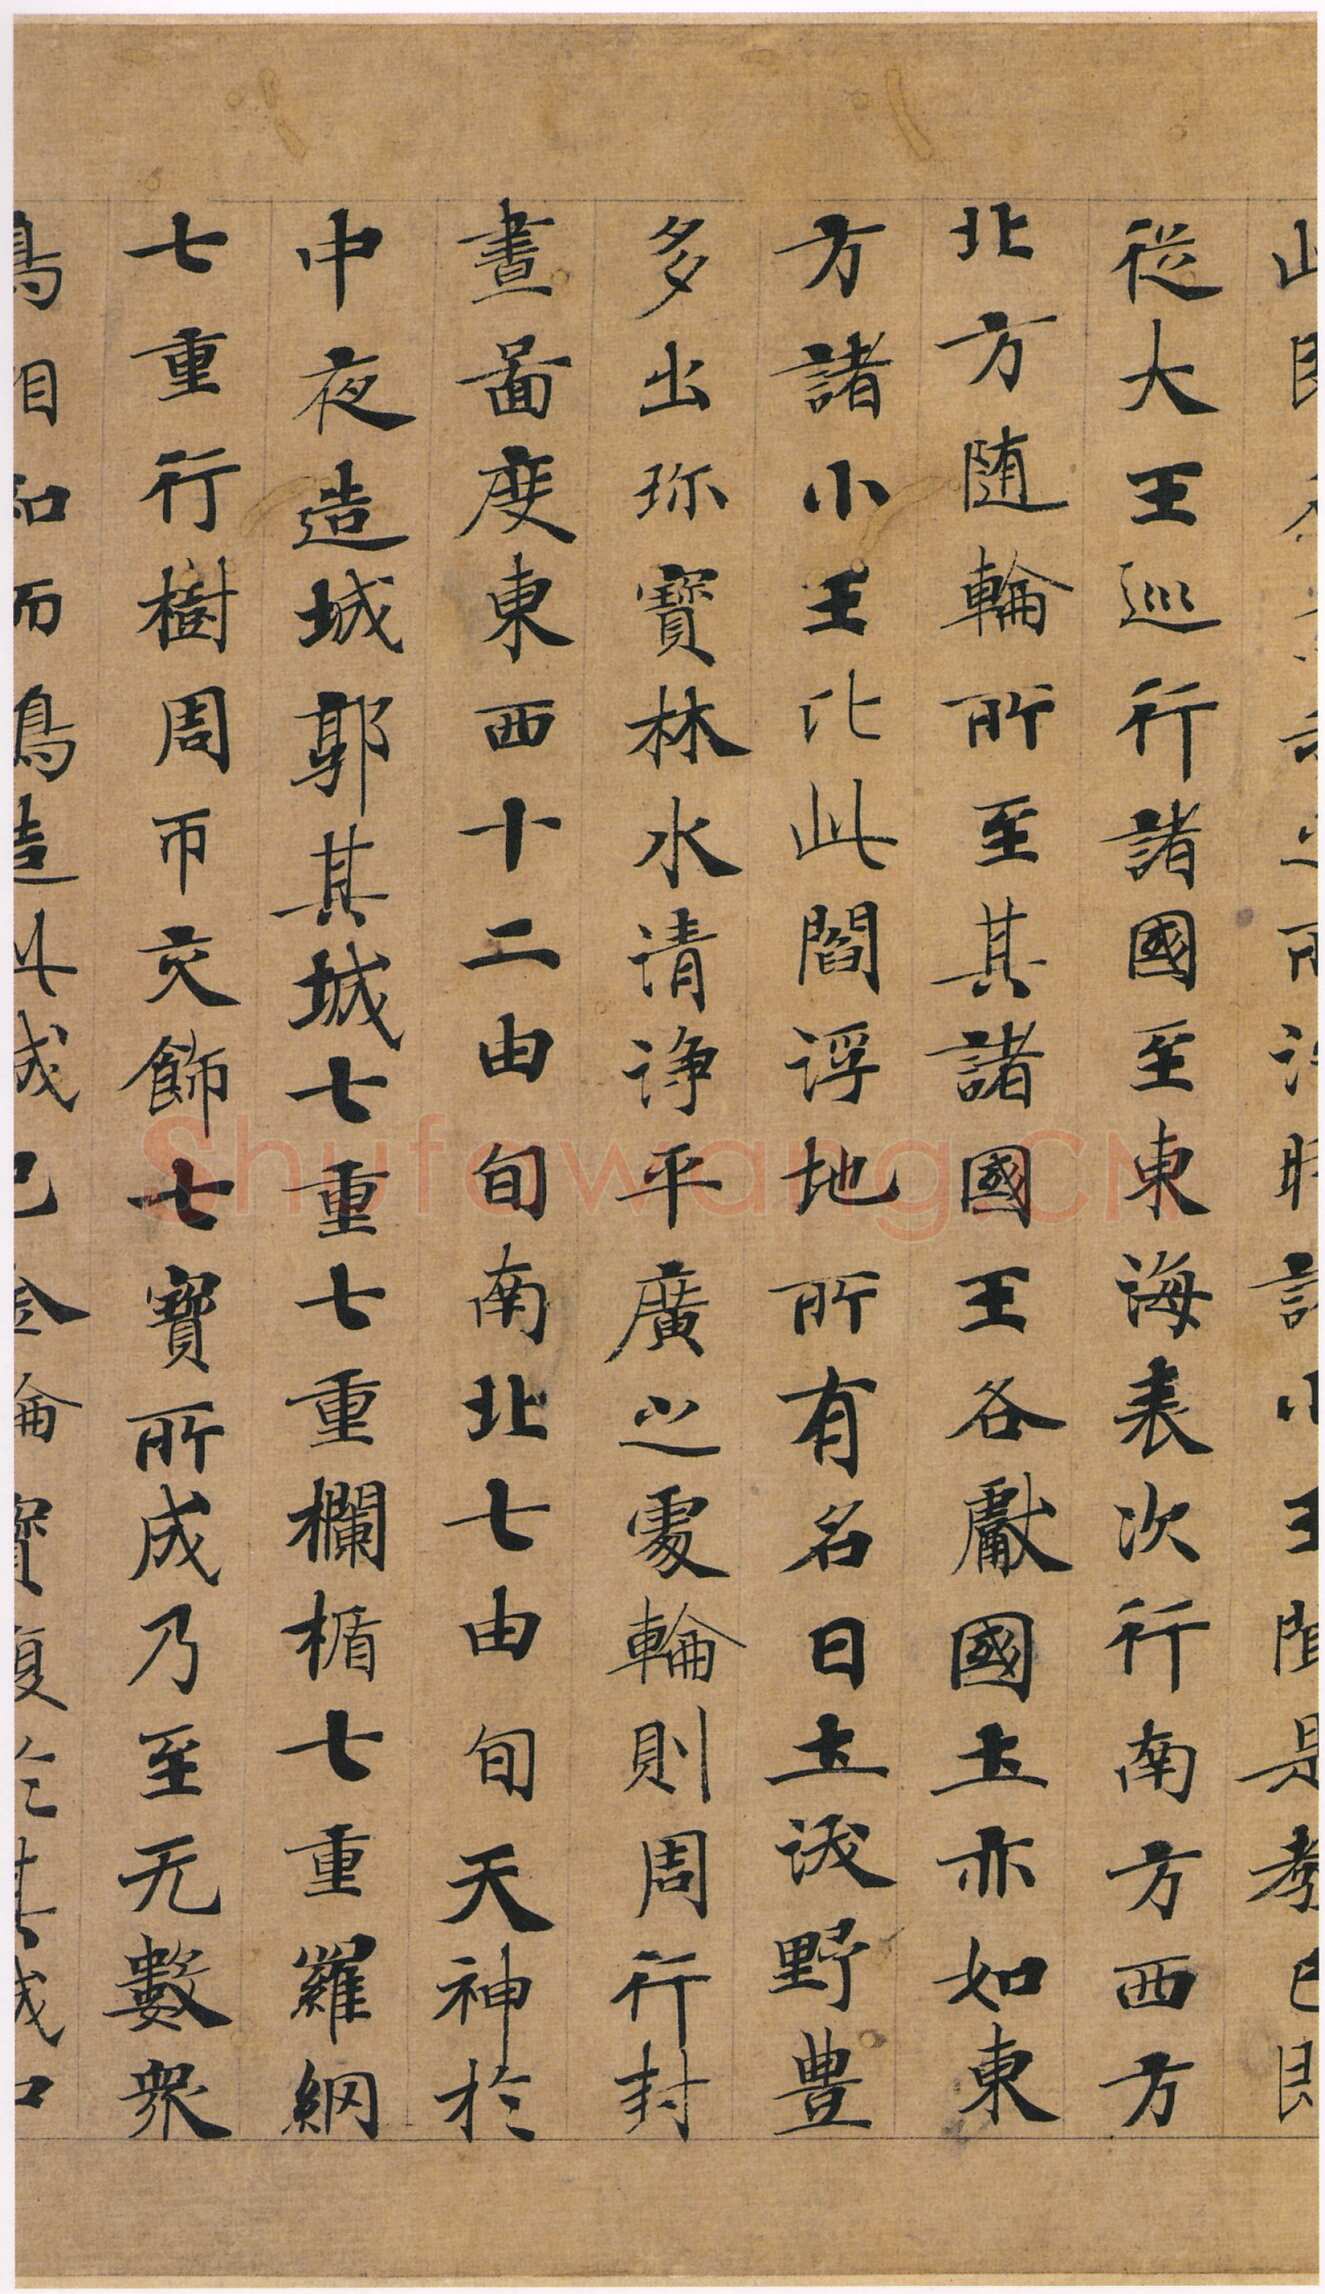 從大王巡行諸國至東海表次行南方西方
北方随輪所至其諸國王各獻國土亦如東
方諸小王比此閻浮地所有名曰土沃野豊
多出珎寶林水清浄平廣之處輪則周行封
畫啚度東西十二由旬南北七由旬天神於
中夜造城郭其城七重七重欄楯七重羅網
七重行樹周帀交飾七寶所成乃至无數衆
鳥相和而鳴造此城已金輪寶復於其城中
Shufawang.CN